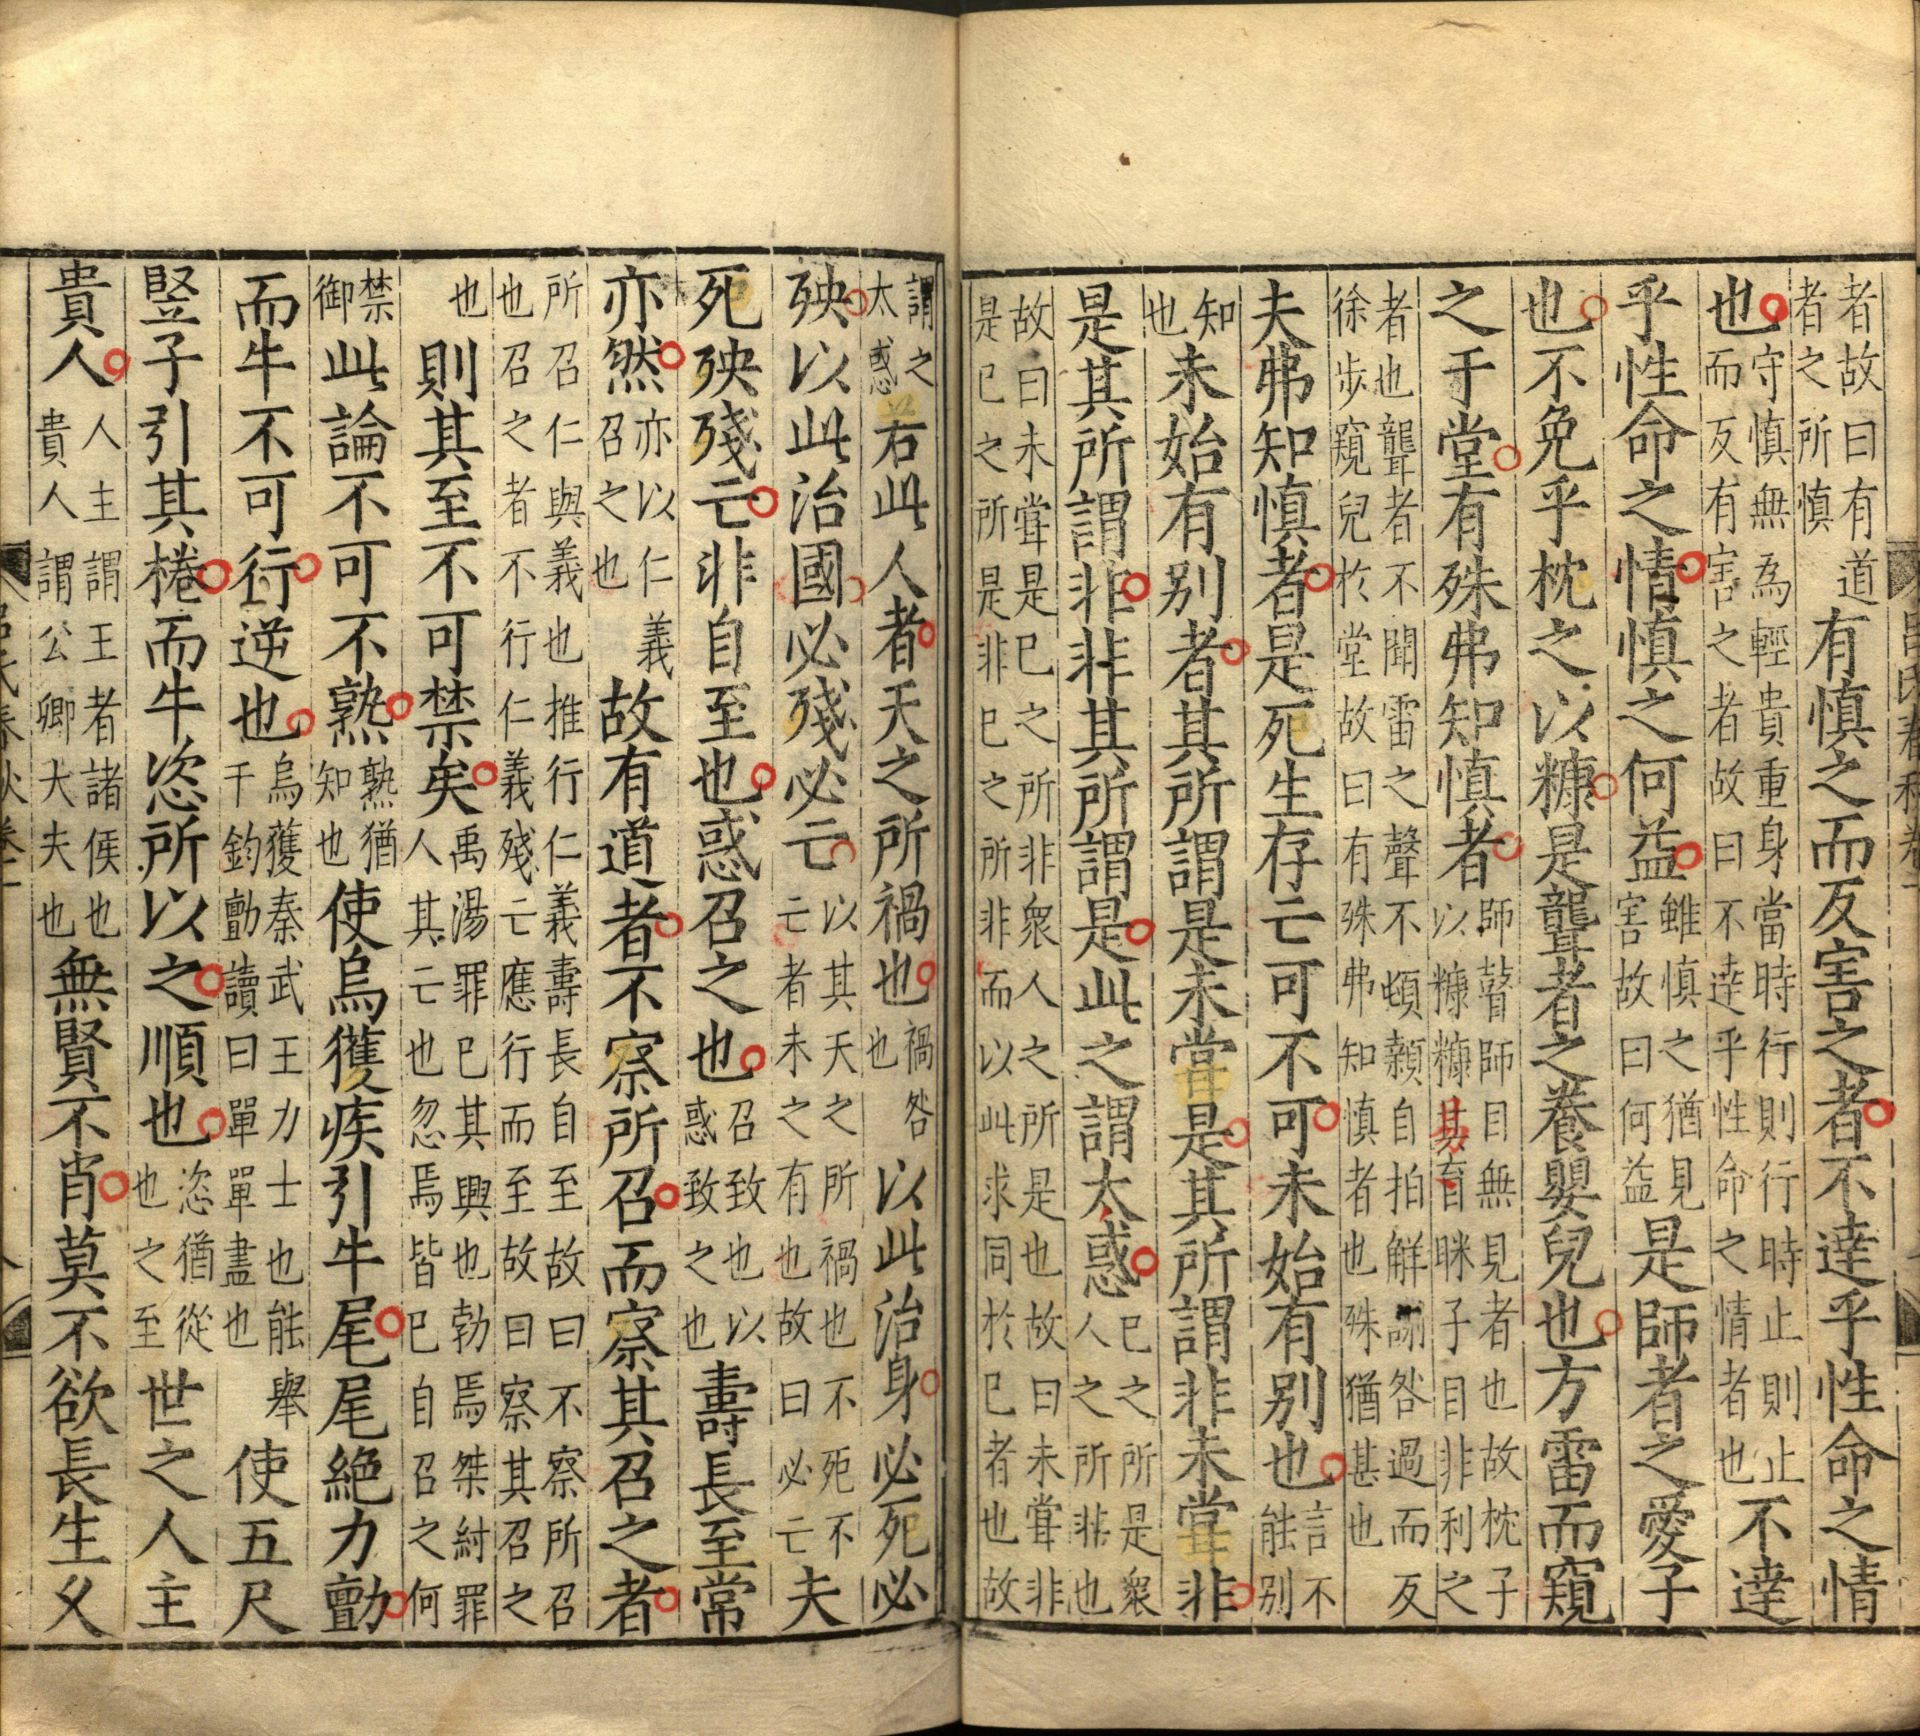 者故曰有道
者之所慎
有慎之而反害之者不達乎性命之情
也
守慎無為輕貴重身當時行則行時止則止
而反有害之者故曰不達乎性命之情者也
不達
乎性命之情慎之何益
雖慎之猶見
害故曰何益
是師者之愛子
也不免乎枕之以糠是聾者之養嬰兒也方雷而窺
之于堂有殊弗知慎者
師瞽師目無見者也故枕子
以糠糠其盲眯子目非利之
者也聾者不聞雷之聲不頓顙自拍解謝咎過而反
徐步窺兒於堂故曰有殊弗知慎者也殊猶甚也
夫弗知慎者是死生存亡可不可未始有別也
言不
能別
知
也
未始有別者其所謂是未嘗是其所謂非未嘗非
是其所謂非非其所謂是此之謂太惑
已之所是衆
人之所非也
故曰未嘗是已之所非衆人之所是也故曰未嘗非
是已之所是非已之所非而以此求同於已者也故
謂之
太惑
若此人者天之所禍也
禍咎
也
以此治身必死必
殃以此治國必殘必亡
以其天之所禍也不死不
亡者未之有也故曰必亡
夫
死殃殘亡非自至也惑召之也
召致也以
惑致之也
壽長至常
亦然
亦以仁義
召之也
故有道者不察所召而察其召之者
所召仁與義也推行仁義壽長自至故曰不察所召
也召之者不行仁義殘亡應行而至故曰察其召之
也
則其至不可禁矣
禹湯罪已其興也勃焉桀紂罪
人其亡也忽焉皆已自召之何
禁
御
此論不可不熟
熟猶
知也
使烏獲疾引牛尾尾絕力勯
而牛不可行逆也
烏獲秦武王力士也能舉
千鈞勯讀曰單單盡也
使五尺
豎子引其棬而牛恣所以之順也
恣猶從
也之至
世之人主
貴人
人主謂王者諸侯也
貴人謂公卿大夫也
無賢不肖莫不欲長生久